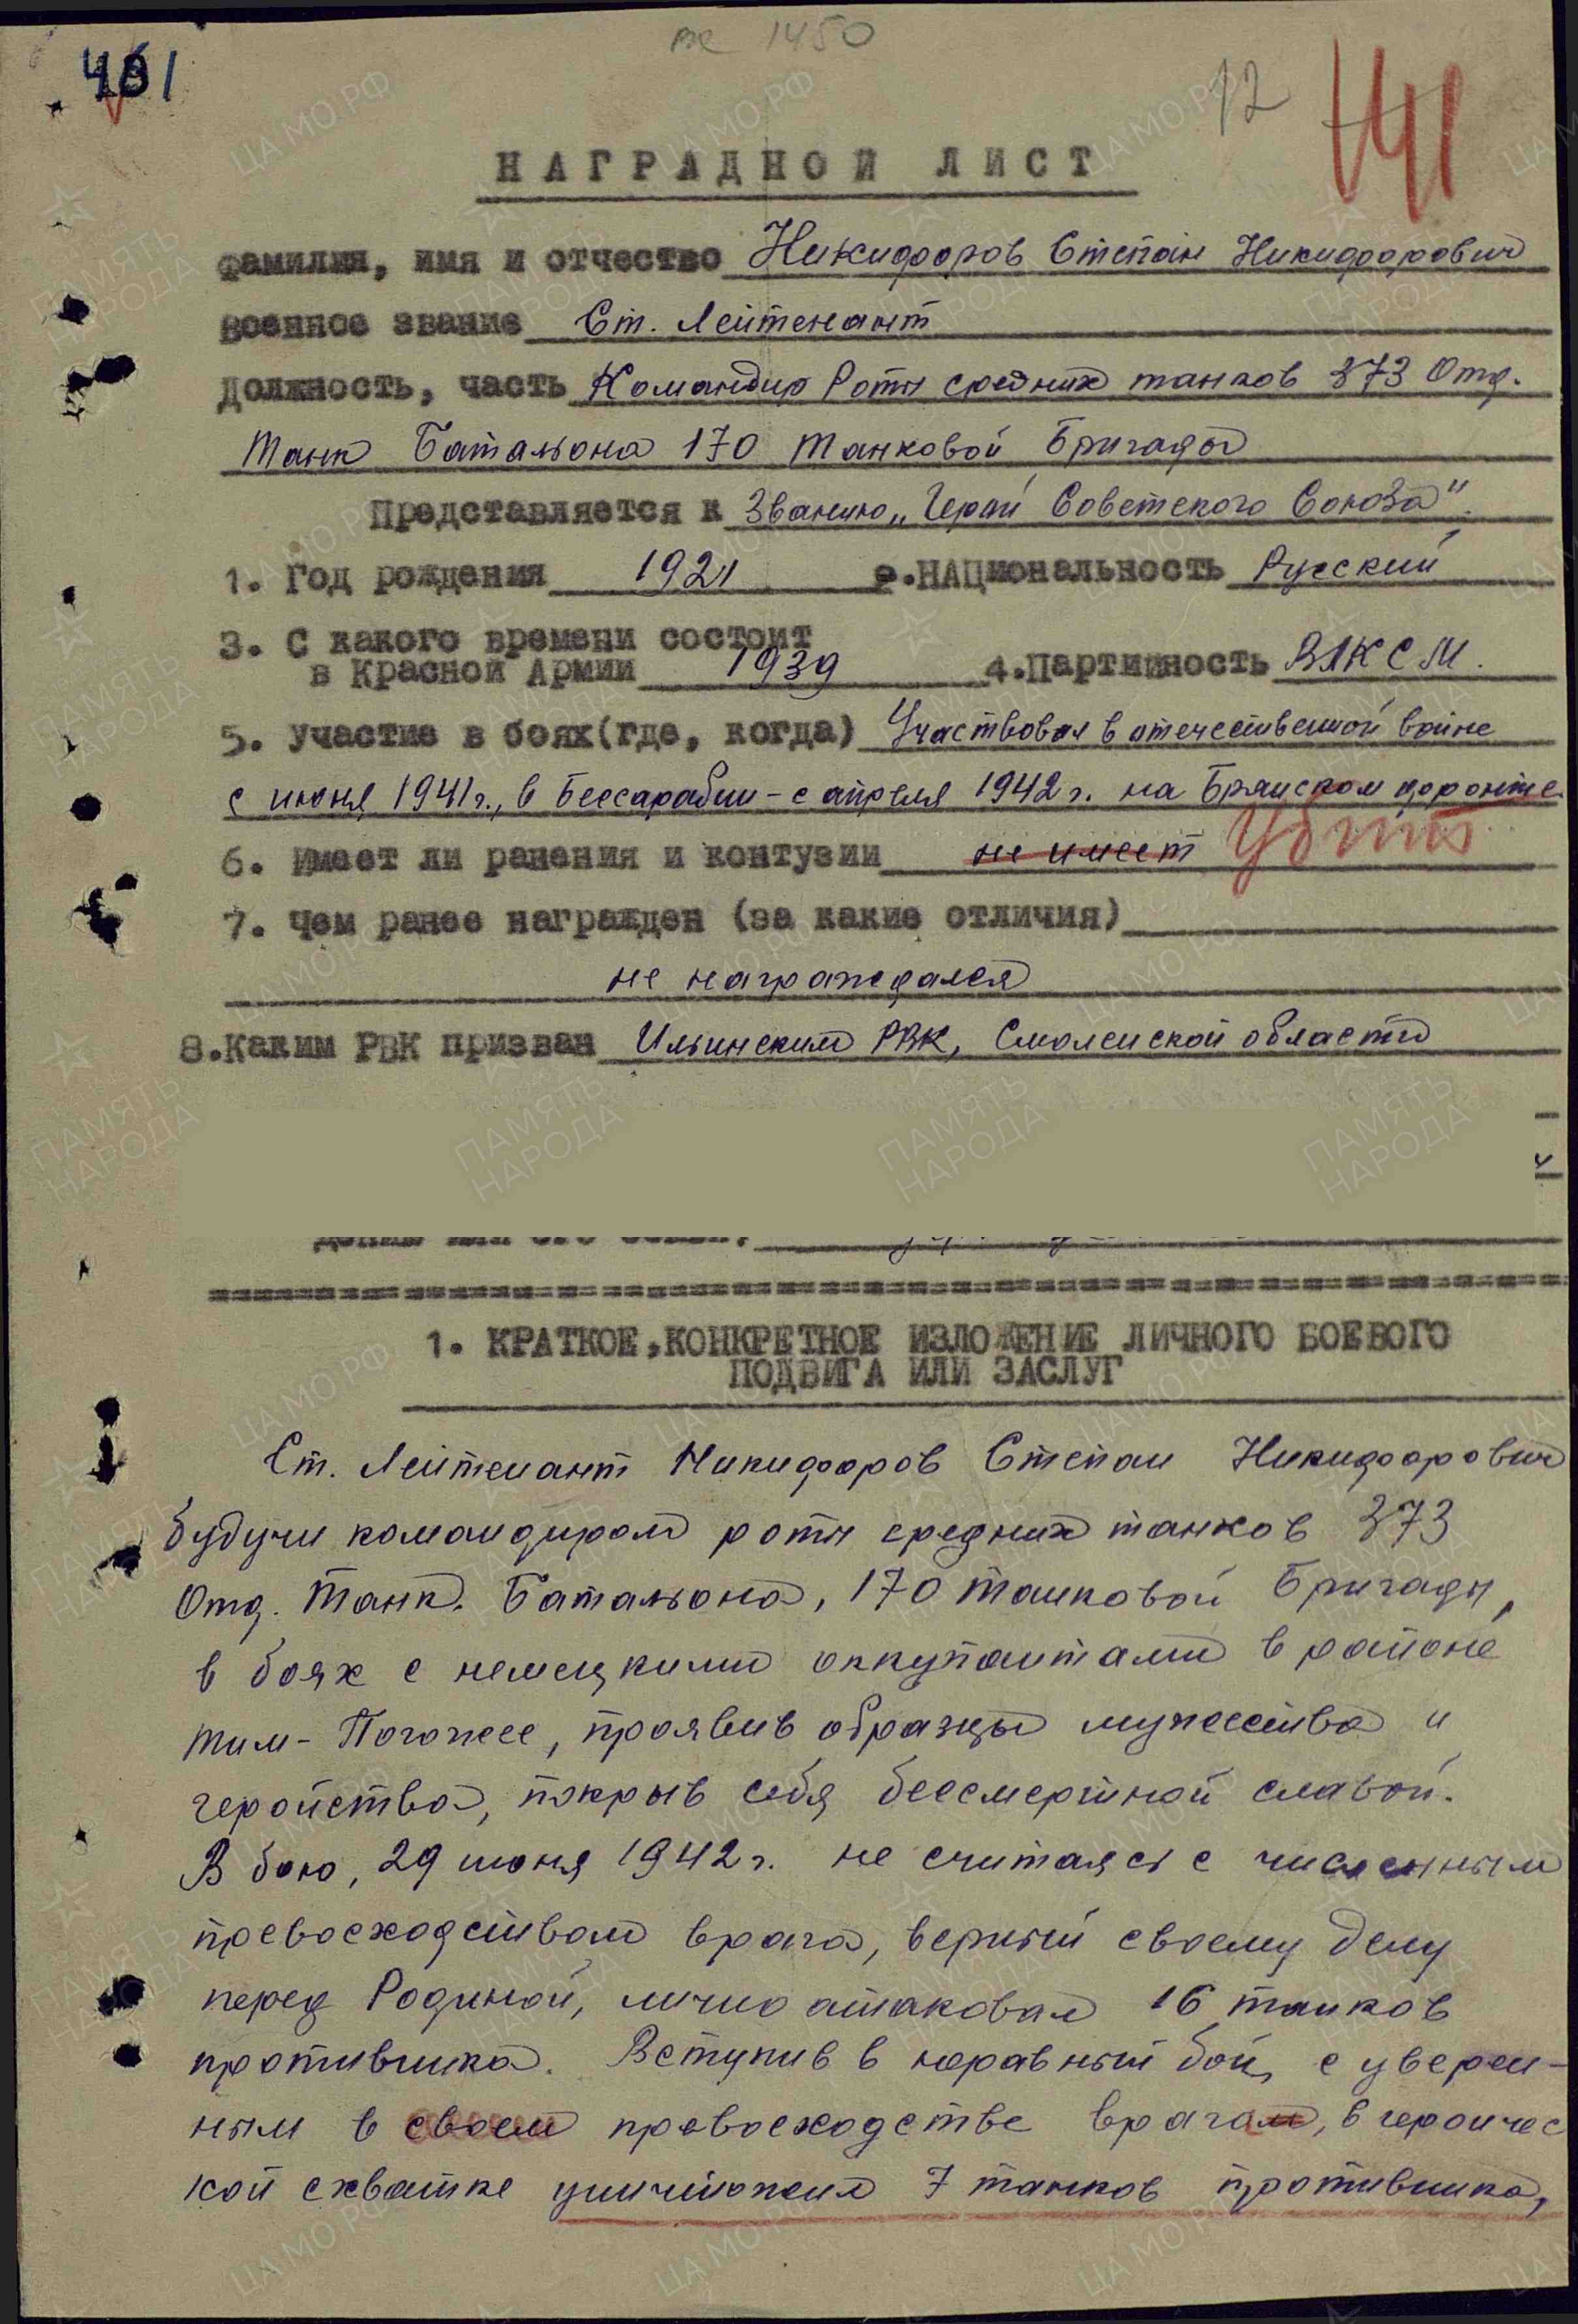 вк 1450
401
12
141
НАГРАДНОЙ ЛИСТ
Фамилия, имя и отчество Никифоров Степан Никифорович
Военное звание Ст. Лейтенант
Должность, часть Командир Роты средних танков 373 Отд.
Танк Батальона 170 Танковой Бригады
Представляется к Званию „Герой Советского Союза".
1. Год рождения 1921 2.НАЦиональность Русский
3. С какого времени состоит
в Красной Армии 1939 4.Партийность ВЛКСМ.
5. Участие в боях(где, когда) Участвовал в отечественной войне
с июня 1941г., в Бессарабии - с апреля 1942г. на Брянском фронте.
6. Имеет ли ранения и контузии не имеет Убит
7. Чем ранее награжден (за какие отличия)
не награждался
8.Каким РВК призван Ильинским РВК, Смоленской области
1. КРАТКОЕ,КОНКРЕТНОЕ ИЗЛОЖЕНИЕ ЛИЧНОГО БОЕВОГО
ПОДВИГА ИЛИ ЗАСЛУГ
Ст. Лейтенант Никифоров Степан Никифорович
будучи командиром роты средних танков 373
Отд. Танк. Батальона, 170 танковой Бригады,
в боях с немецкими оккупантами в районе
Тим - Погожее, проявив образцы мужества и
геройства, покрыв себя бессмертной славой.
В бою, 29 июня 1942г. не считаясь с численным
превосходством врага, верный своему делу
перед Родиной, лично атаковал 16 танков
противника. Вступив в неравный бой, с уверен-
ным в своем превосходстве врагом, в героичес
кой схватке уничтожил 7 танков противника,
ЦА МО РФ
ПАМЯТЬ
НАРОДА